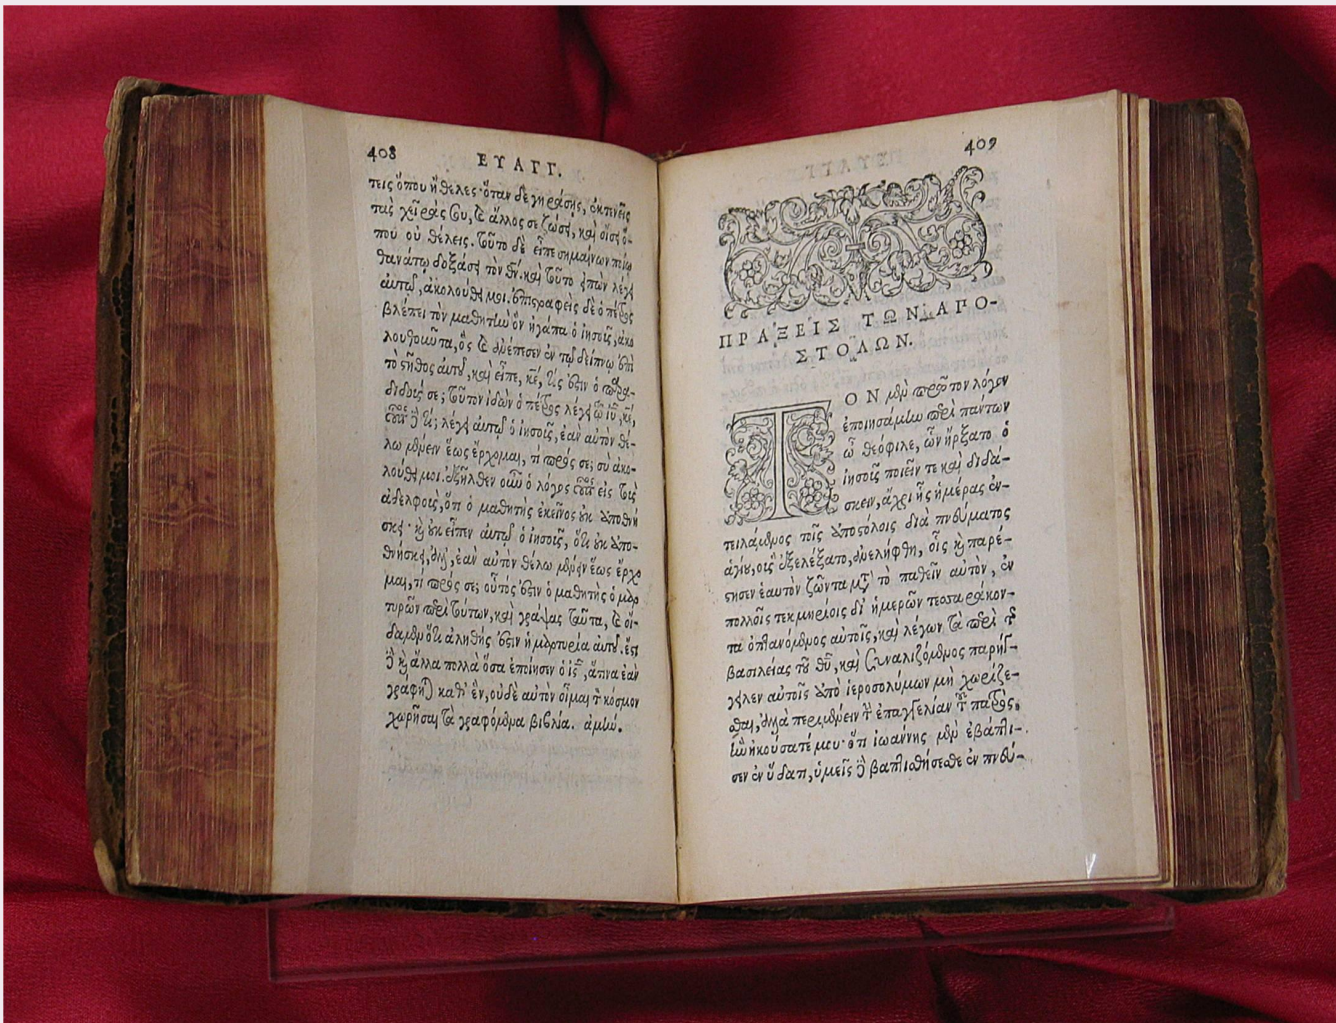 408
ΕΥΑΓΓ.
πεις ὅπου ἤθελες· ὅταν δὲ γηράσῃς, ἐκτενεῖς
τὰς χεῖράς σου, καὶ ἄλλος σε ζώσει, καὶ οἴσει ὅ-
που οὐ θέλεις. τοῦτο δὲ εἶπε σημαίνων ποίῳ
θανάτῳ δοξάσει τὸν θν̅. καὶ τοῦτο εἰπὼν λέγει
αὐτῷ, ἀκολούθει μοι. ἐπιστραφεὶς δὲ ὁ πέτρος
βλέπει τὸν μαθητὴν ὃν ἠγάπα ὁ ἰησοῦς, ἀκο
λουθοῦντα, ὃς καὶ ἀνέπεσεν ἐν τῷ δείπνῳ ἐπὶ
τὸ στῆθος αὐτοῦ, καὶ εἶπε, κε̅, τίς ἐστιν ὁ παρα-
διδούς σε; τοῦτον ἰδὼν ὁ πέτρος λέγει τῷ ιυ̅, κε̅,
οὗτος δὲ τί; λέγει αὐτῷ ὁ ἰησοῦς, ἐὰν αὐτὸν θέ-
λω μένειν ἕως ἔρχομαι, τί πρός σε; σὺ ἀκο-
λούθει μοι. ἐξῆλθεν οὖν ὁ λόγος οὗτος εἰς τοὺς
ἀδελφοὺς, ὅτι ὁ μαθητὴς ἐκεῖνος οὐκ ἀποθνή
σκει· καὶ οὐκ εἶπεν αὐτῷ ὁ ἰησοῦς, ὅτι οὐκ ἀπο-
θνήσκει, ἀλλ', ἐὰν αὐτὸν θέλω μένειν ἕως ἔρχο
μαι, τί πρός σε; οὗτός ἐστιν ὁ μαθητὴς ὁ μαρ
τυρῶν περὶ τούτων, καὶ γράψας ταῦτα, καὶ οἴ-
δαμεν ὅτι ἀληθής ἐστιν ἡ μαρτυρία αὐτοῦ. ἔστι
δὲ καὶ ἄλλα πολλὰ ὅσα ἐποίησεν ὁ ις̅, ἅτινα ἐὰν
γράφηται καθ' ἓν, οὐδὲ αὐτὸν οἶμαι τὸν κόσμον
χωρῆσαι τὰ γραφόμενα βιβλία. ἀμήν.
409
ΠΡΑΞΕΙΣ ΤΩΝ ΑΠΟ-
ΣΤΟΛΩΝ.
ΤΟΝ μὲν πρῶτον λόγον
ἐποιησάμην περὶ πάντων
ὦ θεόφιλε, ὧν ἤρξατο ὁ
ἰησοῦς ποιεῖν τε καὶ διδά-
σκειν, ἄχρι ἧς ἡμέρας ἐν-
τειλάμενος τοῖς ἀποστόλοις διὰ πνεύματος
ἁγίου, οὓς ἐξελέξατο, ἀνελήφθη, οἷς καὶ παρέ-
στησεν ἑαυτὸν ζῶντα μετὰ τὸ παθεῖν αὐτὸν, ἐν
πολλοῖς τεκμηρίοις δι' ἡμερῶν τεσσαράκον-
τα ὀπτανόμενος αὐτοῖς, καὶ λέγων τὰ περὶ τῆς
βασιλείας τοῦ θυ̅, καὶ συναλιζόμενος παρήγ-
γειλεν αὐτοῖς ἀπὸ ἱεροσολύμων μὴ χωρίζε-
σθαι, ἀλλὰ περιμένειν τὴν ἐπαγγελίαν τοῦ πατρὸς,
ἣν ἠκούσατέ μου· ὅτι ἰωάννης μὲν ἐβάπτι-
σεν ἐν ὕδατι, ὑμεῖς δὲ βαπτισθήσεσθε ἐν πνεύ-